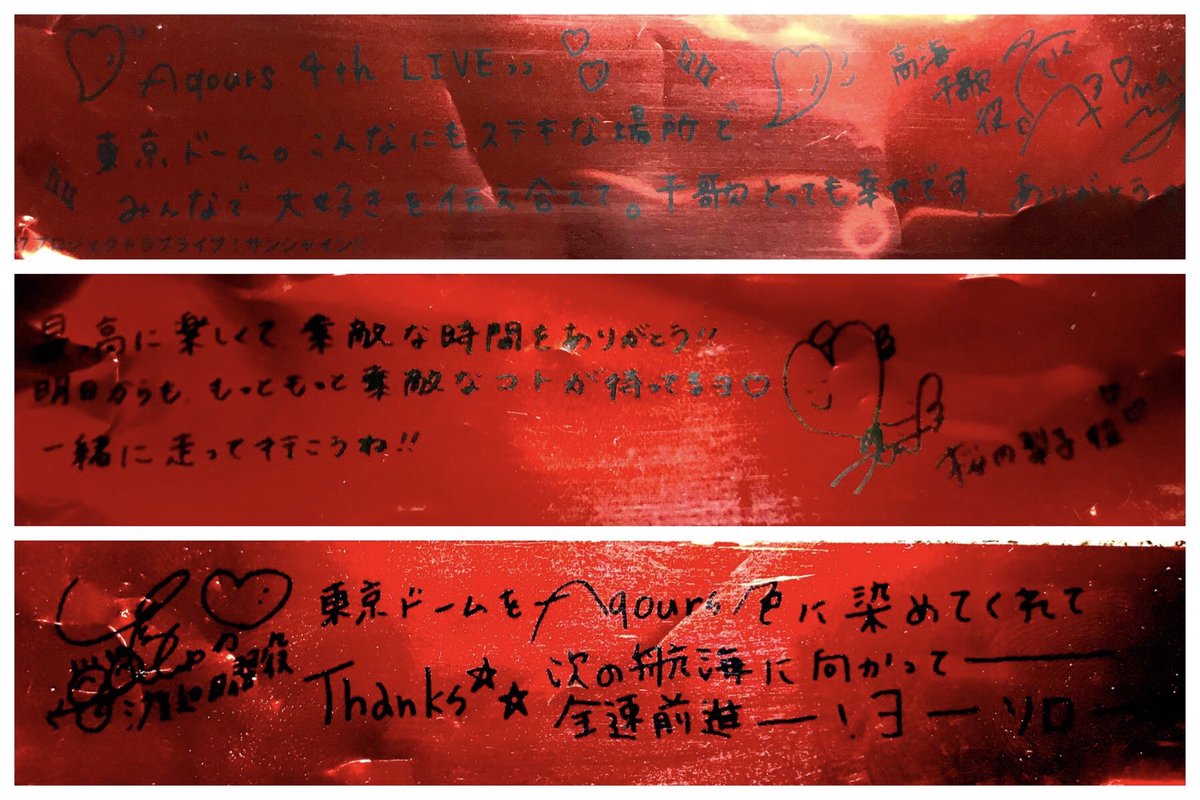 Aqours 4th LIVE>>
高海
千歌
役
東京ドーム。こんなにもステキな場所で
みんなで大好きを伝え合えて。千歌わとっても幸せです。ありがとう
プロジェクトラブライブ！サンシャイン!!
最高に楽しくて素敵な時間をありがとう!!
明日からも もっともっと素敵なコトが待ってるヨ♡
一緒に走って行こうね!!
桜内梨子役
東京ドームをAqours色に染めてくれて
Thanks☆☆
次の航海に向かって――
全速前進ー！ヨーソロー
渡辺曜役